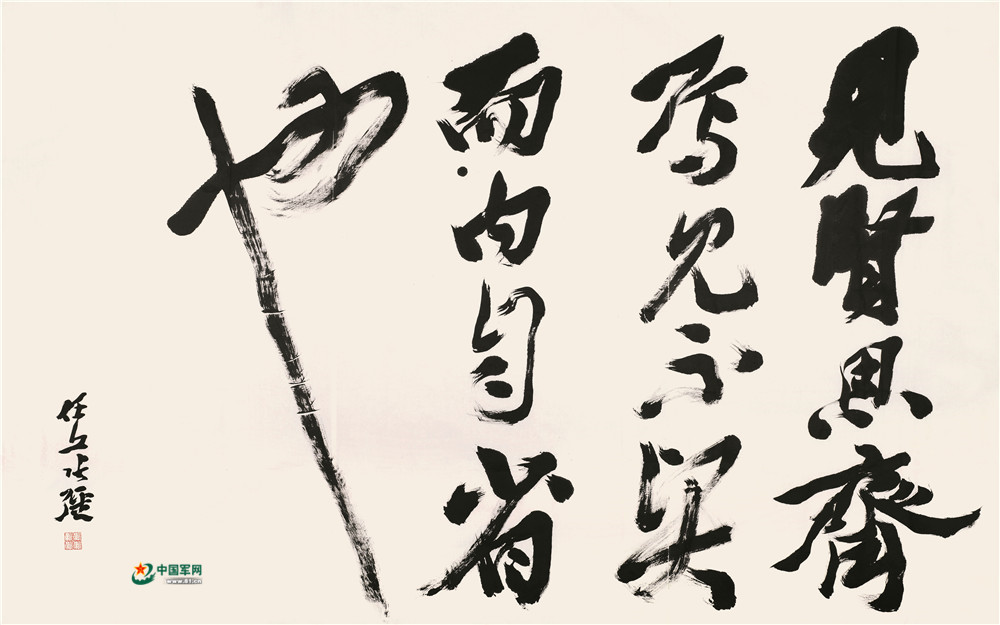 見賢思齊
焉見不賢
而内自省
也
中国军网
www.81.cn